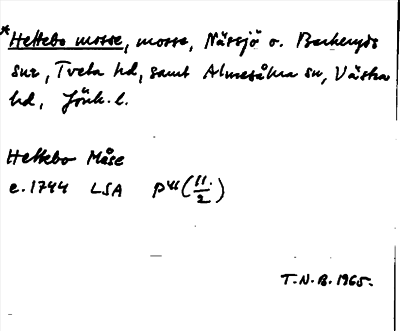 *Hettebo mosse, mosse, Nässjö o. Barkeryds
snr, Tveta hd, samt Almesåkra sn, Västra
hd, Jönk. l.
Hettebo Måse
e. 1744 LSA P44 (11/2)
T.N.B. 1965.